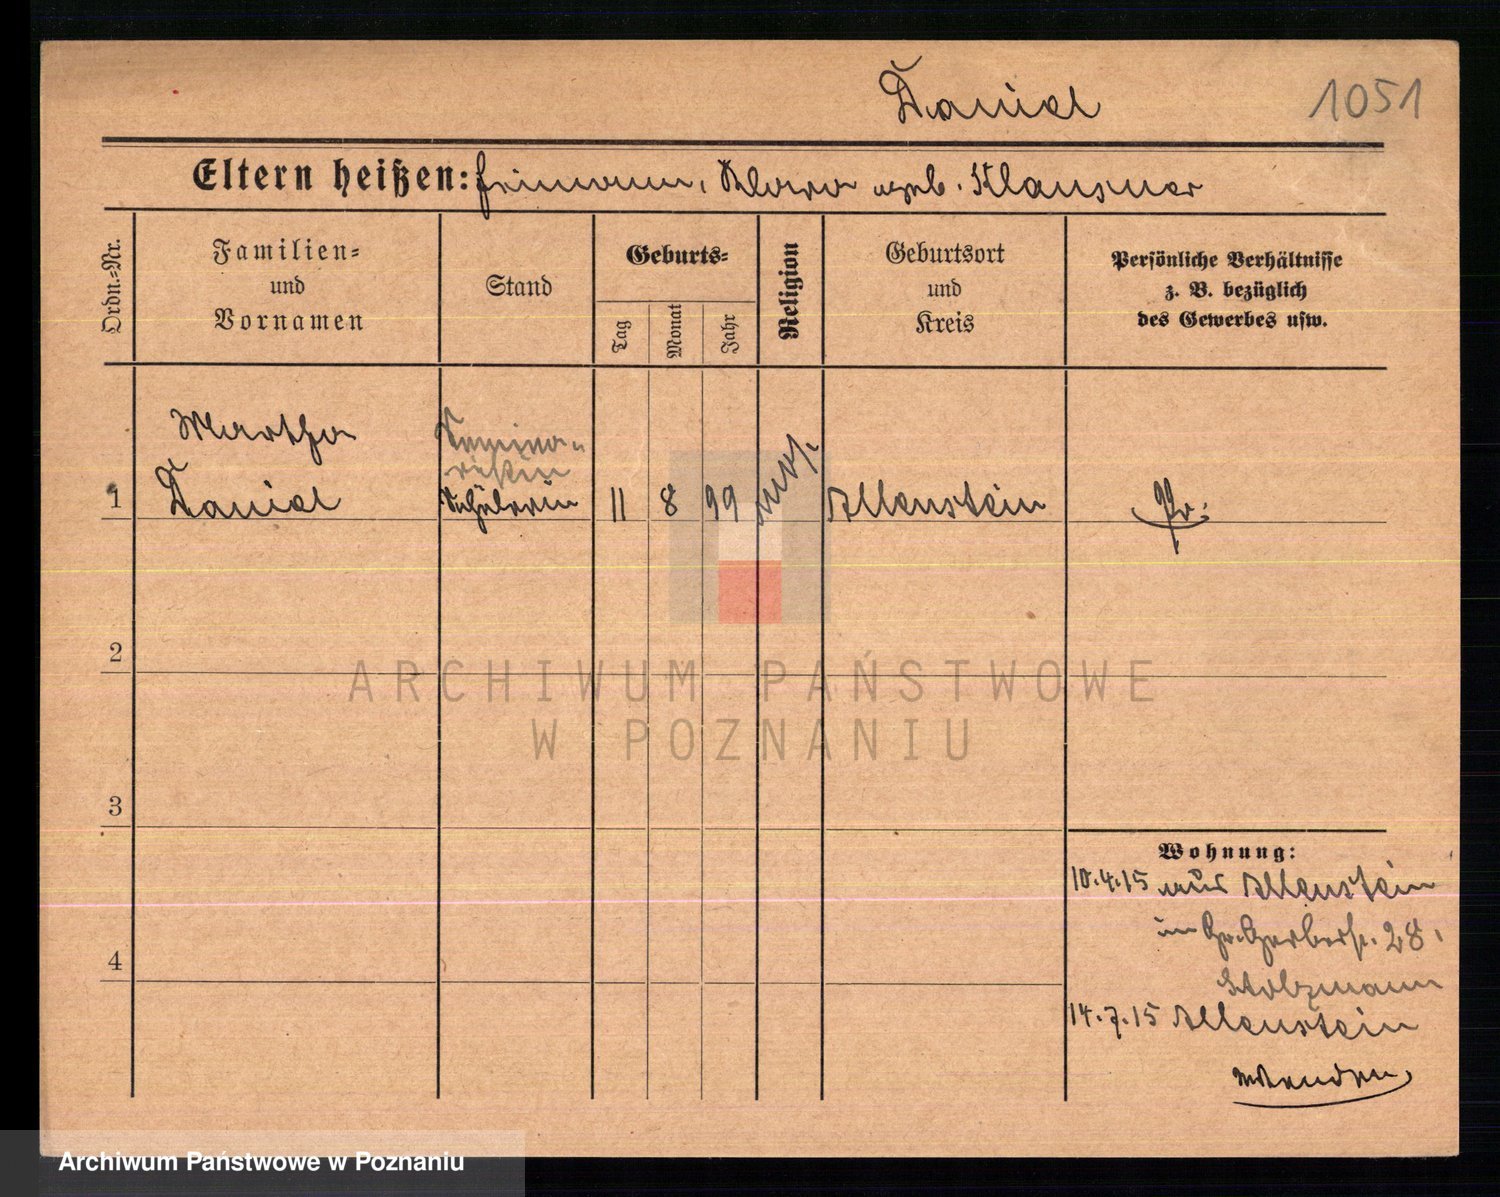 Daniel
1051
Eltern heißen: Hermann, Klara geb. Klausner
Ordn.-Nr.
Familien-
und
Vornamen
Stand
Geburts-
Tag
Monat
Jahr
Religion
Geburtsort
und
Kreis
Persönliche Verhältnisse
z. B. bezüglich
des Gewerbes usw.
Martha
Semina-
ristin
1 Daniel Schülerin 11 8 99 mos. Allenstein Pr.
2
ARCHIWUM PAŃSTWOWE
W POZNANIU
3
Wohnung:
10.4.15 aus Allenstein
in Gr. Gerberst. 28,
4
Stolzmann
14.7.15 Allenstein
wenden
Archiwum Państwowe w Poznaniu